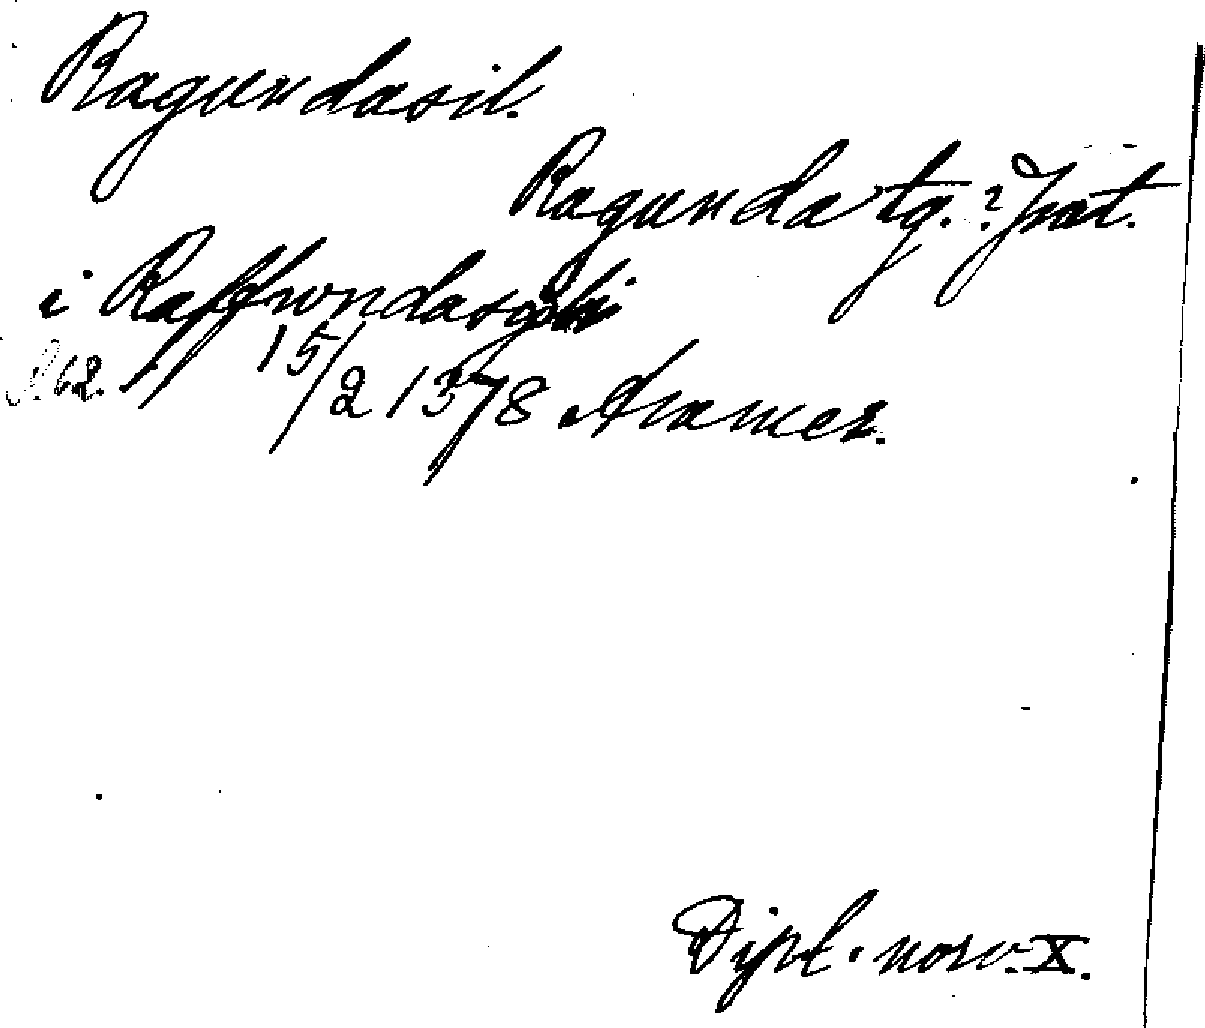 Ragundasil.
Ragunda tg. ? Jmt.
i Raffwndasyshi
s. 62. 15/2 1378 Aramer.
Dipl. norv. X.